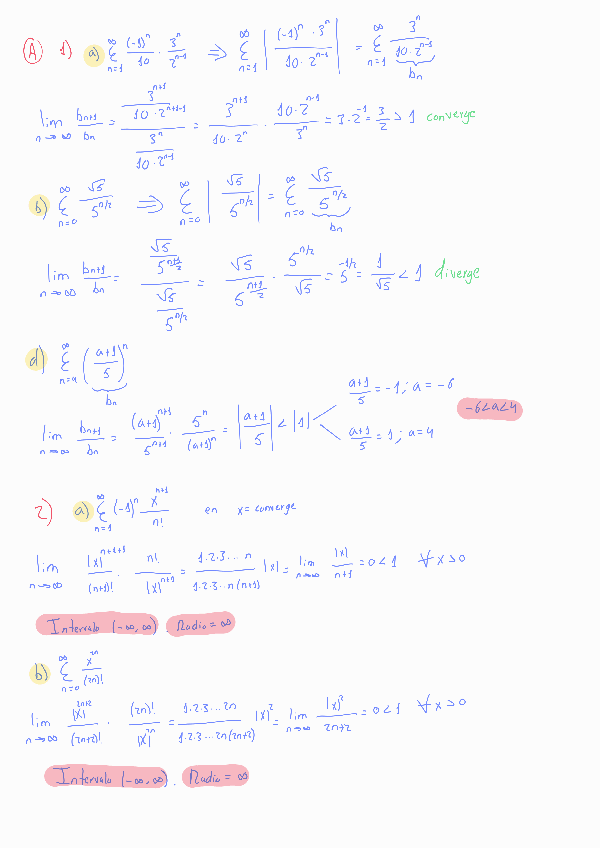 A 1) a) ∑_{n=1}^{∞} (-1)^n/10 · 3^n/2^{n-1} ⇒ ∑_{n=1}^{∞} |(-1)^n · 3^n / 10 · 2^{n-1}| = ∑_{n=1}^{∞} 3^n / 10 · 2^{n-1} bn
lim_{n→∞} b_{n+1}/bn = (3^{n+1} / 10 · 2^{n+1-1}) / (3^n / 10 · 2^{n-1}) = 3^{n+1} / 10 · 2^n · 10 · 2^{n-1} / 3^n = 3 · 2^{-1} = 3/2 > 1 converge
b) ∑_{n=0}^{∞} √5 / 5^{n/2} ⇒ ∑_{n=0}^{∞} |√5 / 5^{n/2}| = ∑_{n=0}^{∞} √5 / 5^{n/2} bn
lim_{n→∞} b_{n+1}/bn = (√5 / 5^{(n+1)/2}) / (√5 / 5^{n/2}) = √5 / 5^{(n+1)/2} · 5^{n/2} / √5 = 5^{-1/2} = 1/√5 < 1 diverge
d) ∑_{n=a}^{∞} ((a+1)/5)^n bn
lim_{n→∞} b_{n+1}/bn = (a+1)^{n+1} / 5^{n+1} · 5^n / (a+1)^n = |(a+1)/5| < |1|
(a+1)/5 = -1; a = -6
(a+1)/5 = 1; a = 4
-6<a<4
2) a) ∑_{n=1}^{∞} (-1)^n x^{n+1} / n! en x = converge
lim_{n→∞} |x|^{n+1+1} / (n+1)! · n! / |x|^{n+1} = 1·2·3... n / 1·2·3... n(n+1) |x| = lim_{n→∞} |x| / n+1 = 0 < 1 ∀ x > 0
Intervalo (-∞, ∞). Radio = ∞
b) ∑_{n=0}^{∞} x^{2n} / (2n)!
lim_{n→∞} |x|^{2n+2} / (2n+2)! · (2n)! / |x|^{2n} = 1·2·3... 2n / 1·2·3... 2n(2n+2) |x|^2 = lim_{n→∞} |x|^2 / 2n+2 = 0 < 1 ∀ x > 0
Intervalo (-∞, ∞). Radio = ∞